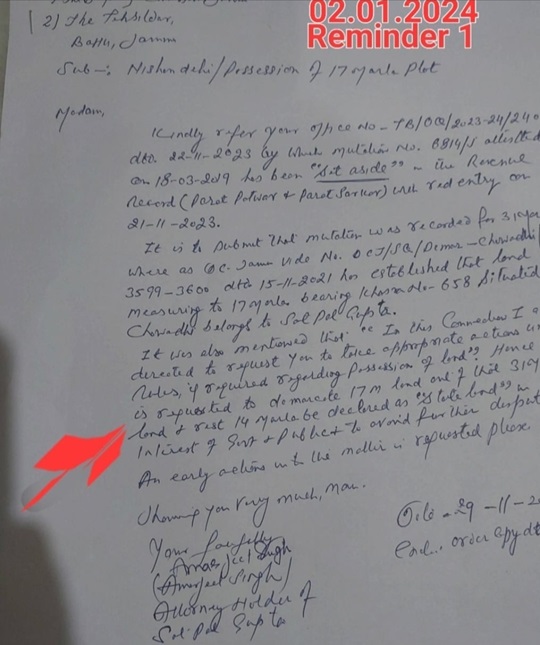 02.01.2024
Reminder 1
2) The Tehsildar,
Bahu, Jammu
Sub -: Nishandehi/Possession of 17 Marla Plot
Madam,
Kindly refer your office No - TB/OQ/2023-24/240
dtd. 22-11-2023 by which mutation No. 6814/S attested
on 18-03-2019 has been "Set aside" in the Revenue
Record (Parat Patwar & Parat Sarkar) with red entry on
21-11-2023.
It is to submit that mutation was recorded for 31
where as DC. Jammu vide No. DCJ/SQ/
3599-3600 dtd 15-11-2021 has established that land
measuring to 17 marla bearing Khasra No- 658 situated
Chowadhi belongs to Sat Pal Gupta.
It was also mentioned that "In this Connection I am
directed to request you to take appropriate actions
rules, if required regarding Possession of land". Hence
is requested to demarcate 17 M land out of that 31
land & rest 14 Marla be declared as "State land" in
Interest of Govt & Public & to avoid further disput
An early actions into the matter is requested please.
Thanking you very much, Mam.
Your faithfully
Amarjeet Singh
(Amarjeet Singh)
Attorney Holder of
Sat Pal Gupta
29-11-20
Encl.. order copy dt